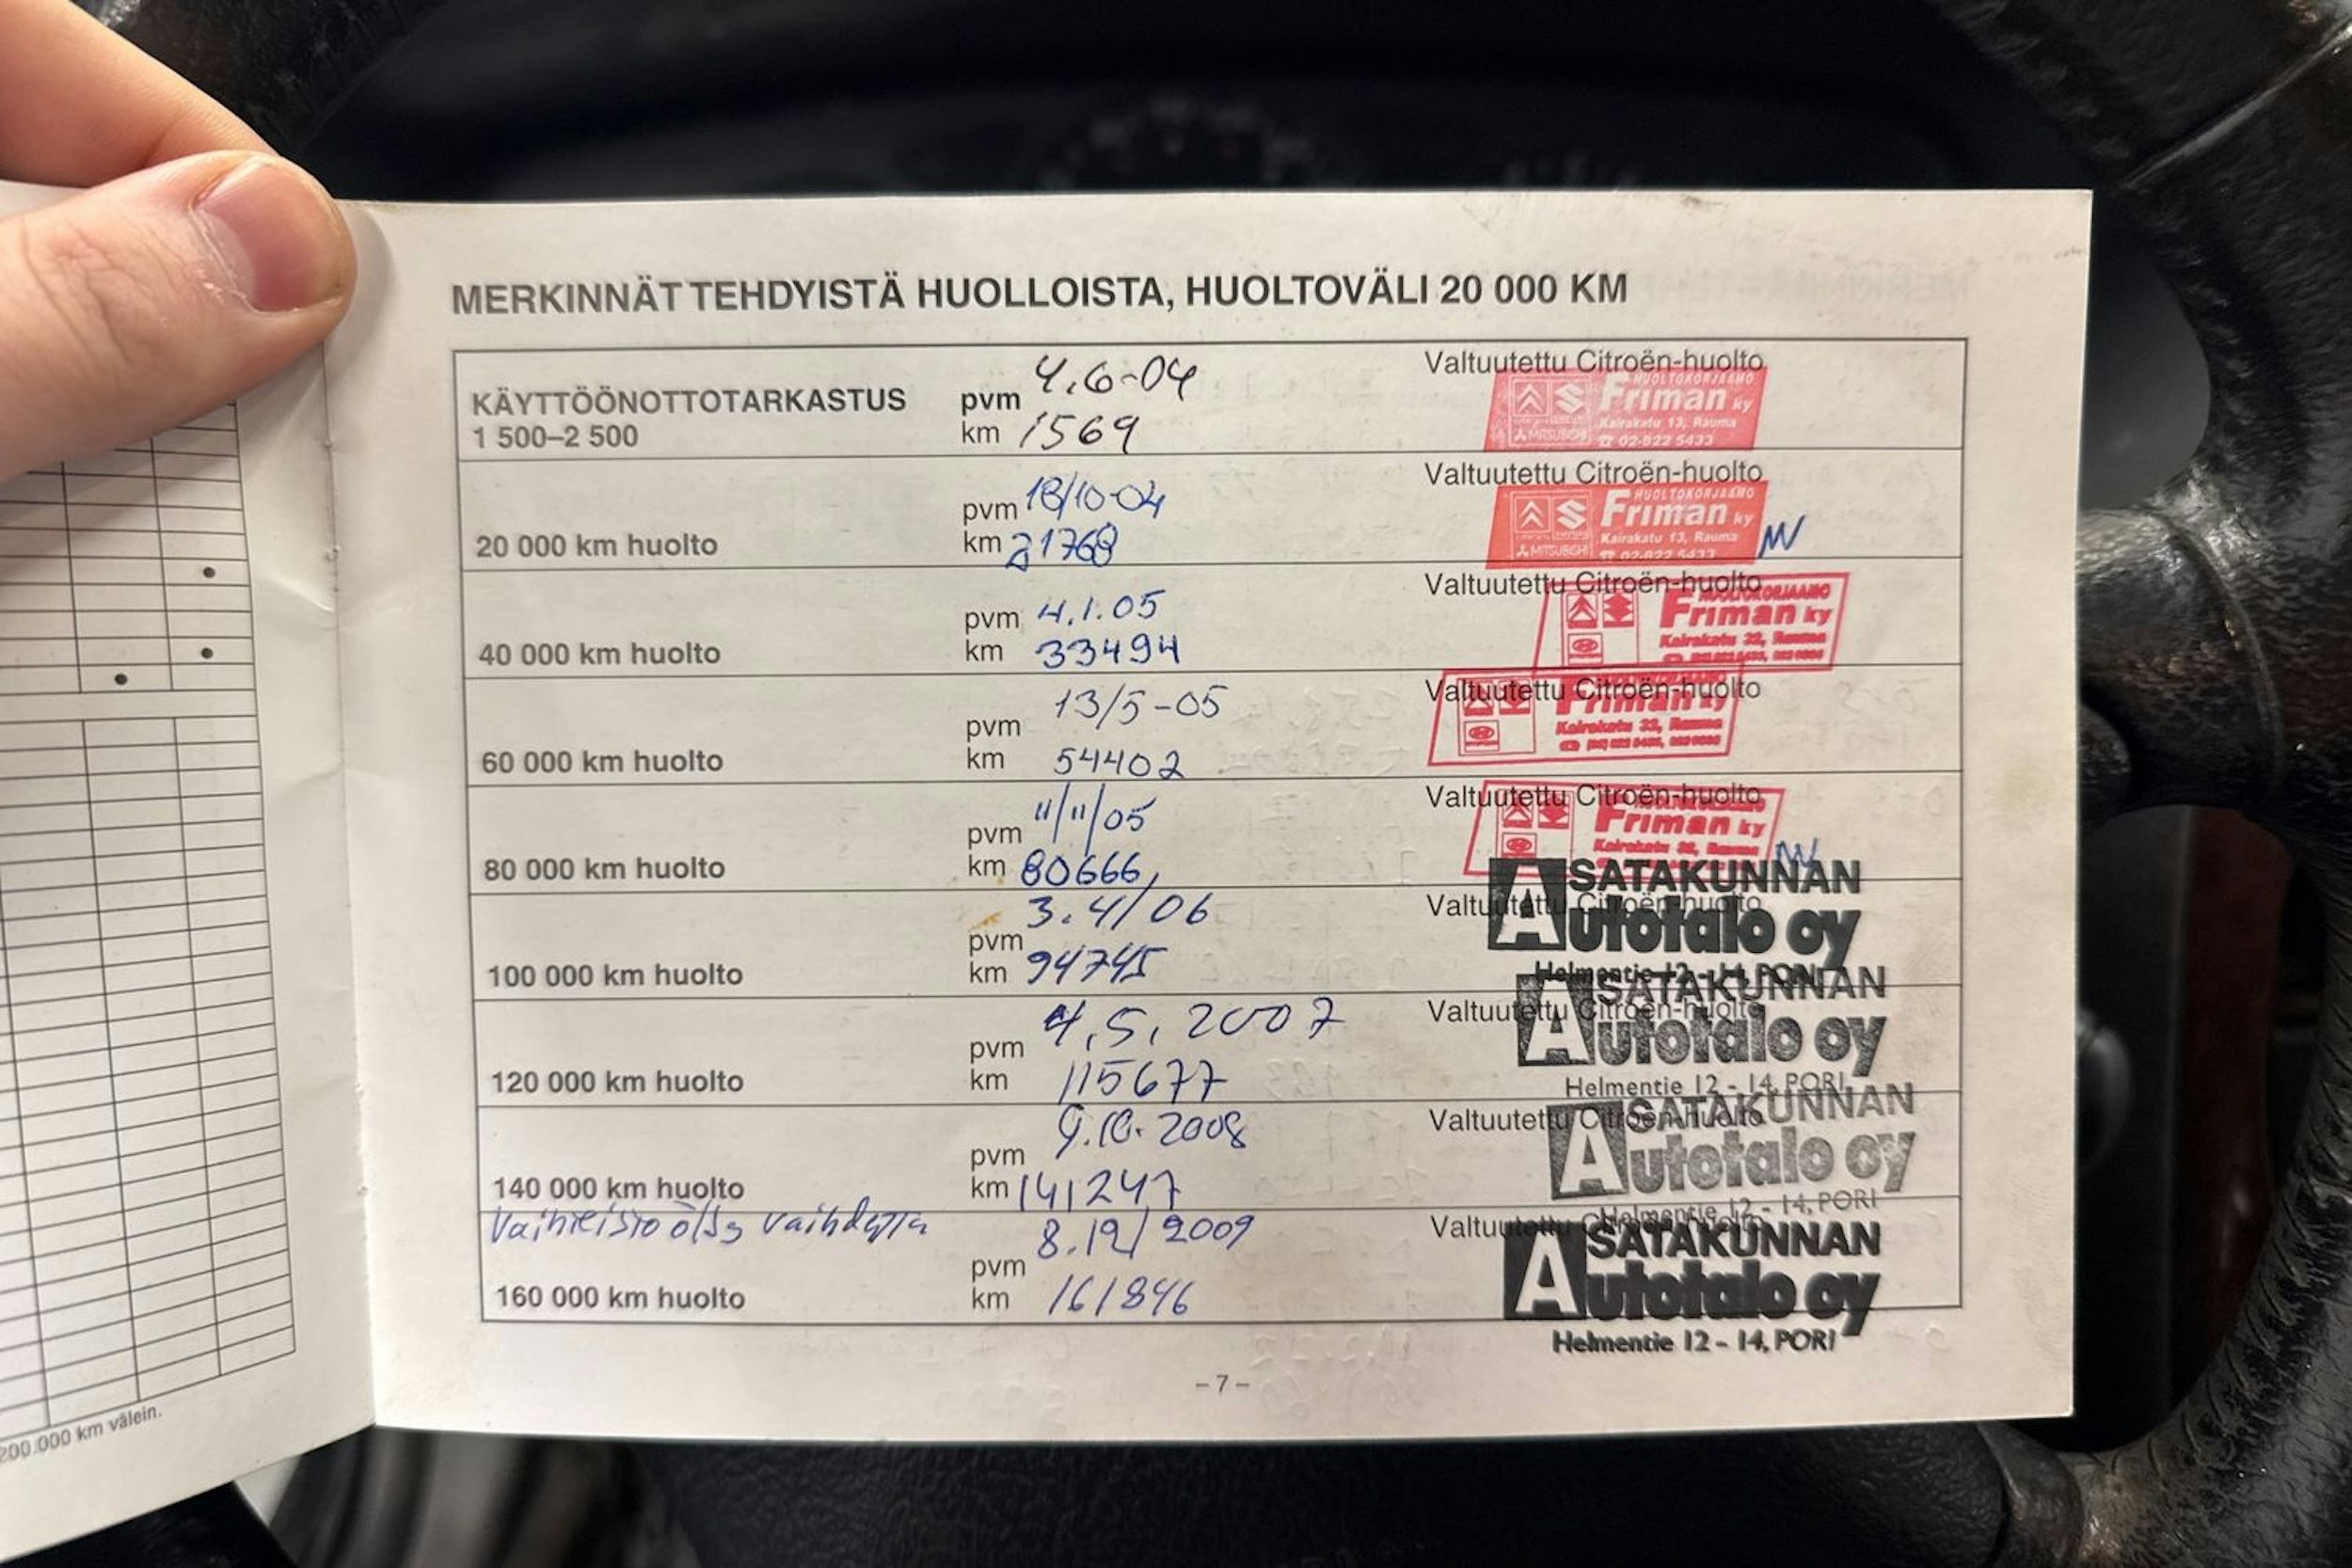 MERKINNÄT TEHDYISTÄ HUOLLOISTA, HUOLTOVÄLI 20 000 KM
KÄYTTÖÖNOTTOTARKASTUS
1 500–2 500
pvm 4.6-04
km 1569
Valtuutettu Citroën-huolto
HUOLTOKORJAAMO
Friman ky
Kairakatu 13, Rauma
MITSUBISHI
☎ 02-822 5433
20 000 km huolto
pvm 18/10-04
km 21768
Valtuutettu Citroën-huolto
HUOLTOKORJAAMO
Friman ky
Kairakatu 13, Rauma
MITSUBISHI
☎ 02-822 5433
40 000 km huolto
pvm 4.1.05
km 33494
Valtuutettu Citroën-huolto
HUOLTOKORJAAMO
Friman ky
Kairakatu 32, Rauma
60 000 km huolto
pvm 13/5-05
km 54402
Valtuutettu Citroën-huolto
Friman ky
Kairakatu 32, Rauma
80 000 km huolto
pvm 11/11/05
km 80666
Valtuutettu Citroën-huolto
Friman ky
Kairakatu 32, Rauma
100 000 km huolto
pvm 3.4/06
km 94745
Valtuutettu Citroën-huolto
SATAKUNNAN
Autotalo oy
Helmentie 12 - 14, PORI
120 000 km huolto
pvm 4.5.2007
km 115677
Valtuutettu Citroën-huolto
SATAKUNNAN
Autotalo oy
Helmentie 12 - 14, PORI
140 000 km huolto
pvm 9.10.2008
km 141247
Valtuutettu Citroën-huolto
SATAKUNNAN
Autotalo oy
Helmentie 12 - 14, PORI
Vaihteisto öljy vaihdettu
160 000 km huolto
pvm 8.12/2009
km 161846
Valtuutettu Citroën-huolto
SATAKUNNAN
Autotalo oy
Helmentie 12 - 14, PORI
– 7 –
200.000 km välein.